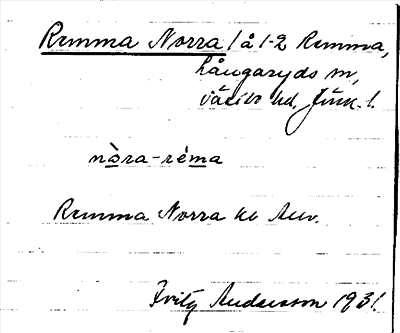 Remma Norra 1 å 1-2 Remma,
Långaryds sn,
Västbo hd, Jönk. l.
nòra-rém̲a
Remma Norra hb Auv.
Fritz Andersson 1931.